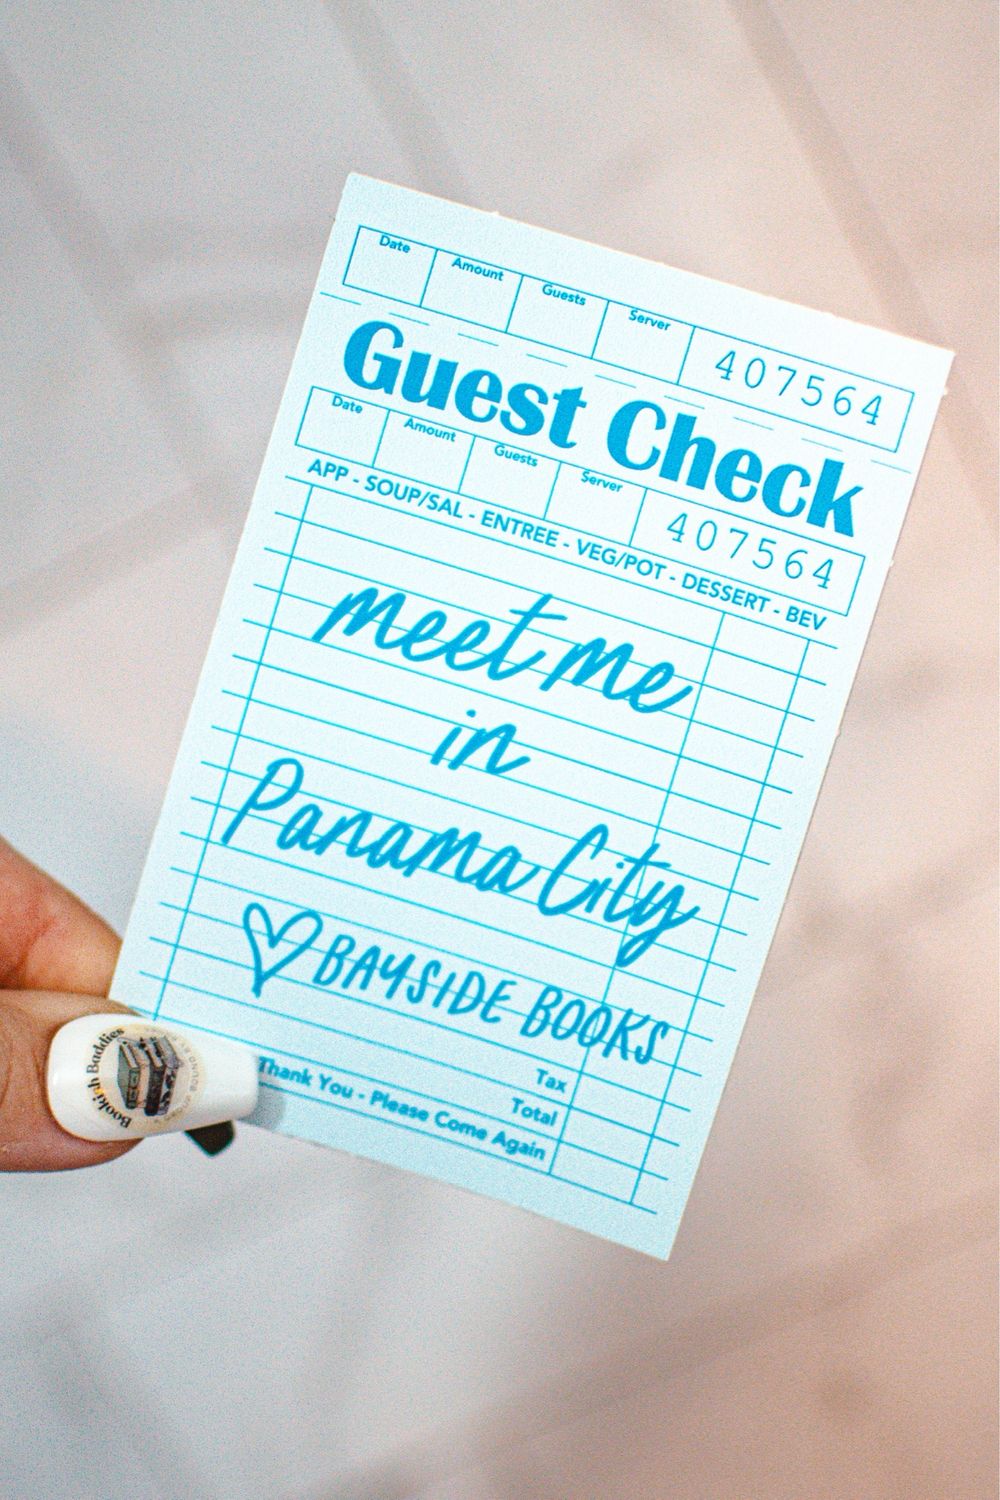 Date Amount Guests Server 407564
Guest Check
Date Amount Guests Server 407564
APP - SOUP/SAL - ENTREE - VEG/POT - DESSERT - BEV
meet me
in
Panama City
BAYSIDE BOOKS
Tax
Total
Thank You - Please Come Again
Bookish Baddies